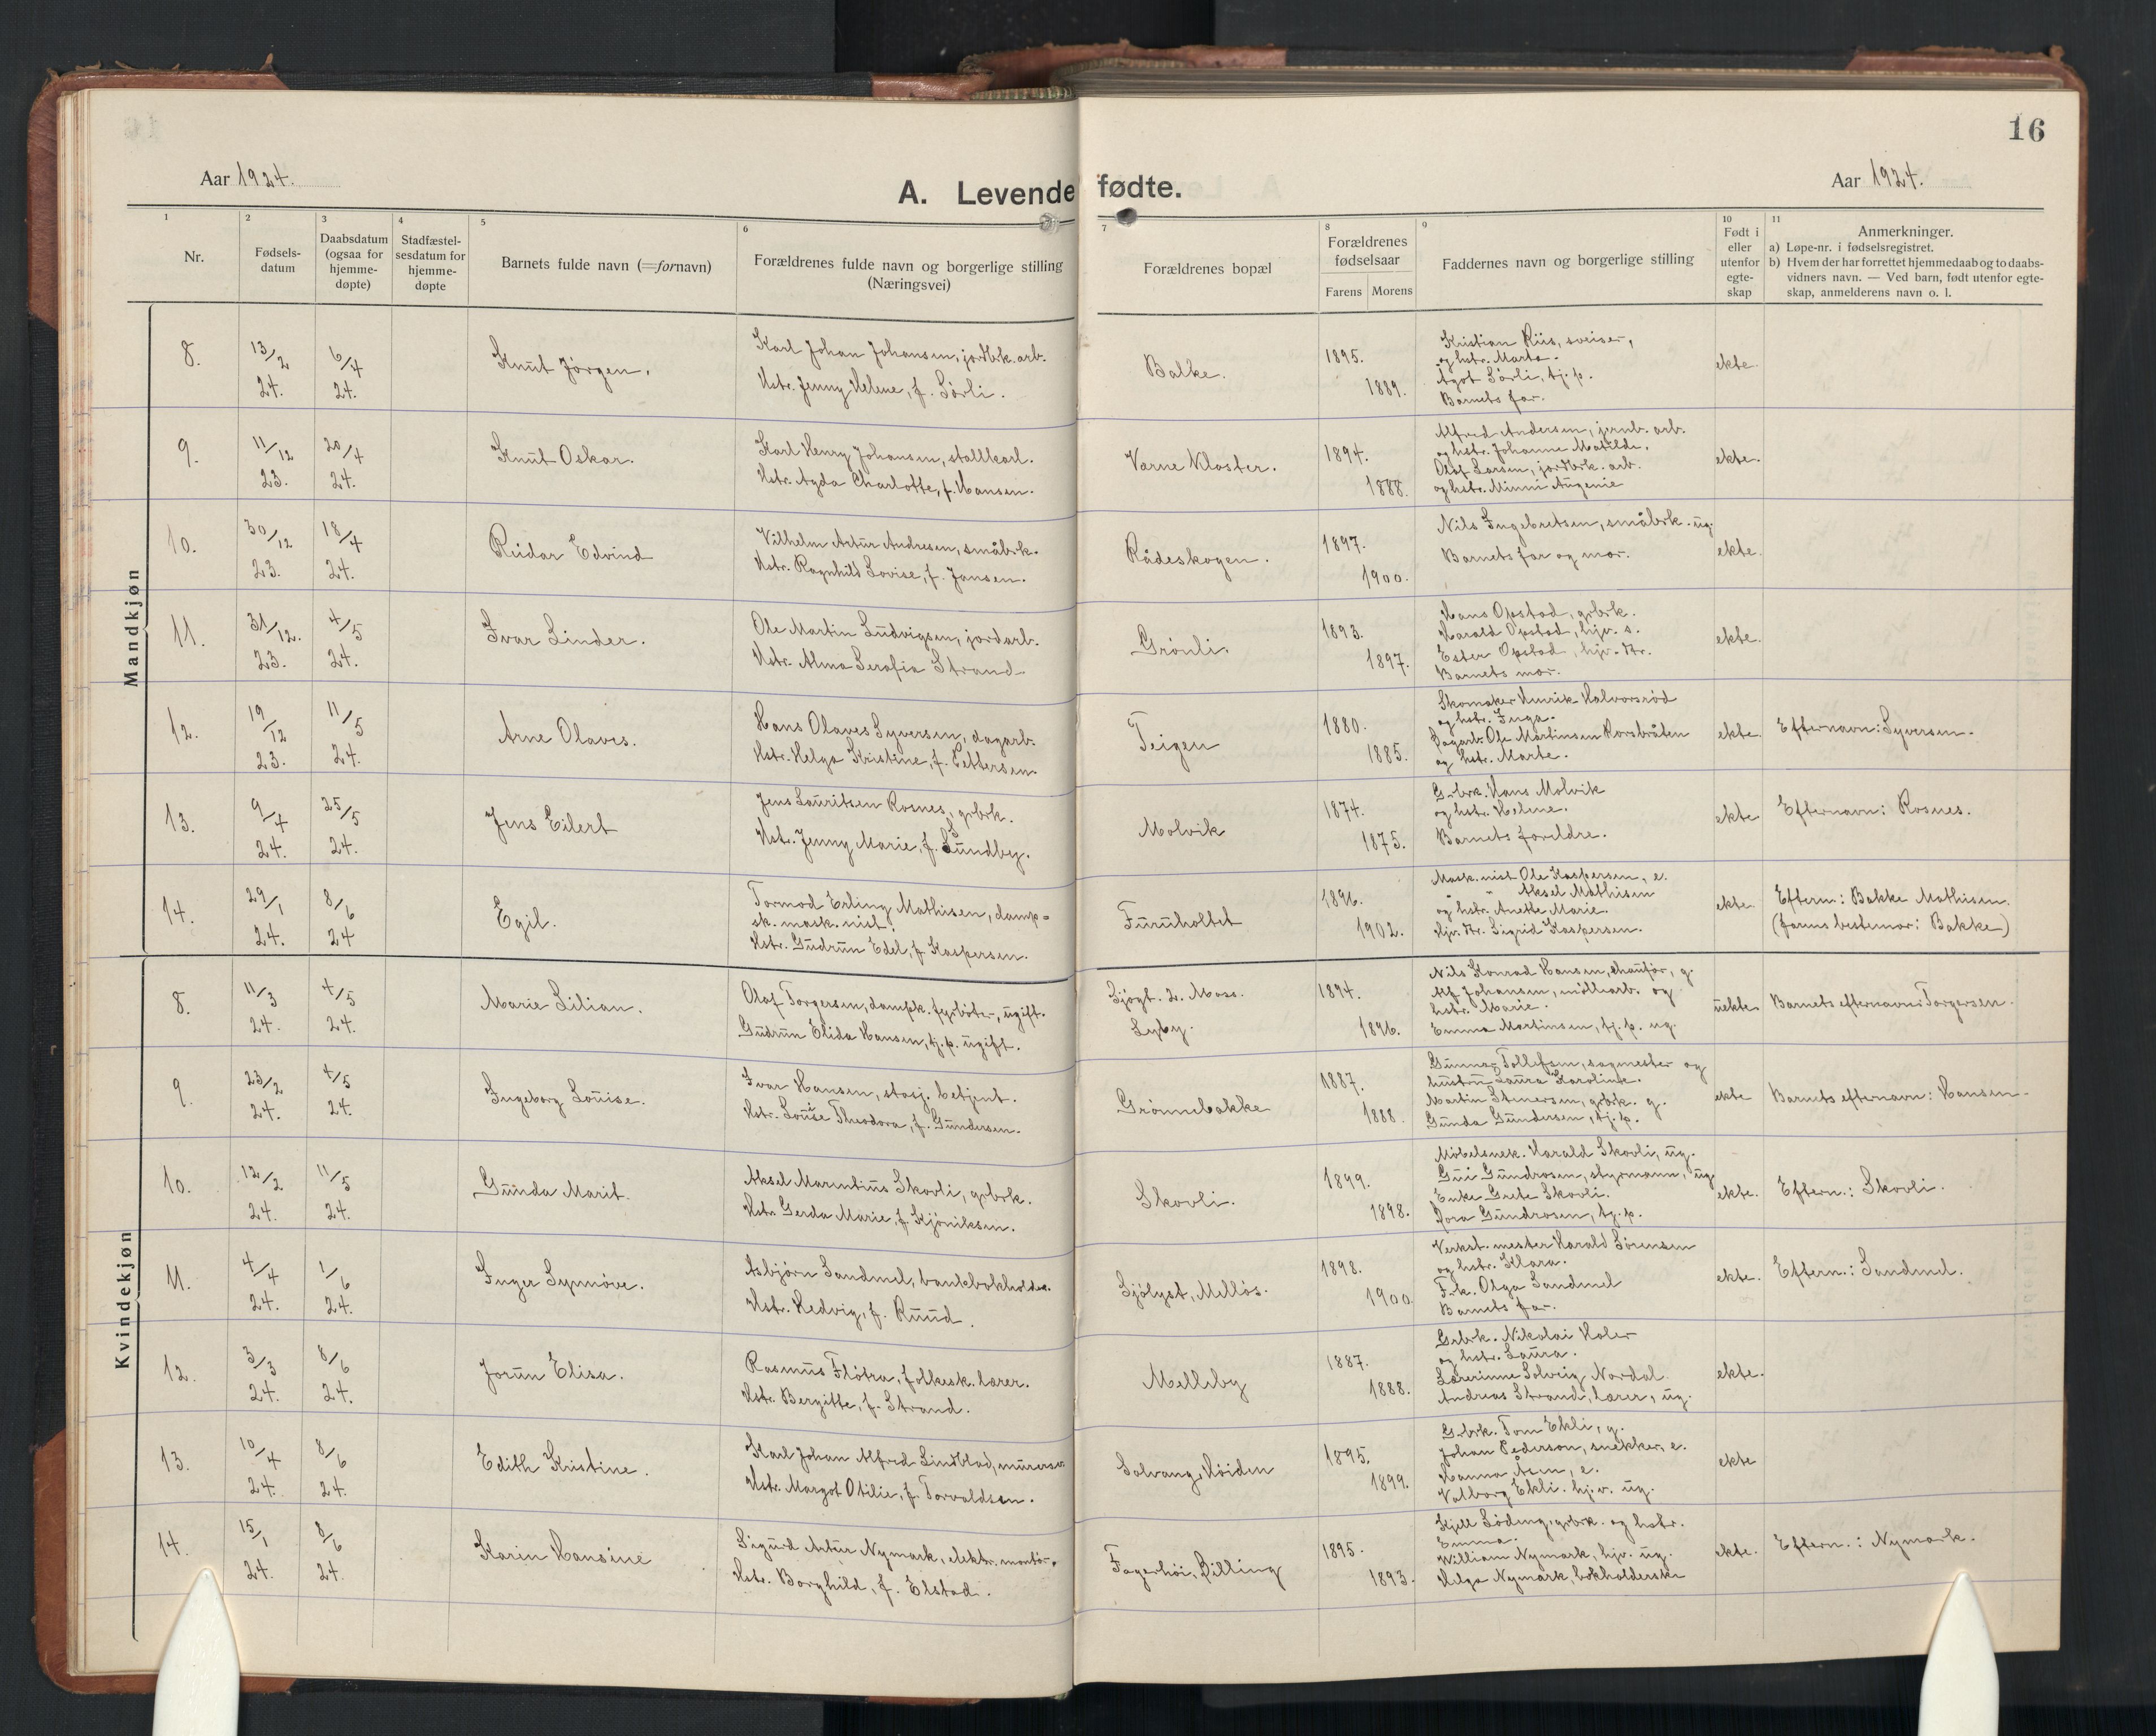 16
Aar 1924.
A. Levende fødte.
Aar 1924.
1
2
3
4
5
6
7
8
9
10
11
Nr.
Fødsels-
datum
Daabsdatum
(ogsaa for
hjemme-
døpte)
Stadfæstel-
sesdatum for
hjemme-
døpte
Barnets fulde navn (=fornavn)
Forældrenes fulde navn og borgerlige stilling
(Næringsvei)
Forældrenes bopæl
Forældrenes
fødselsaar
Farens
Morens
Faddernes navn og borgerlige stilling
Født i
eller
utenfor
egte-
skap
Anmerkninger.
a) Løpe-nr. i fødselsregistret.
b) Hvem der har forrettet hjemmedaab og to daabs-
vidners navn. — Ved barn, født utenfor egte-
skap, anmelderens navn o. l.
Mandkjøn
8.
13/2
24.
6/4
24.
Knut Jørgen.
Karl Johan Johansen, jordbrk. arb.
Hstr. Jenny Helene, f. Sørli.
Balke.
1895.
1889.
Kristian Riis, sveiser,
og hstr. Marta.
Agot Sørli, tj. p.
Barnets far.
ekte.
9.
11/12
23.
20/4
24.
Knut Oskar.
Karl Henry Johansen, stallkarl.
Hstr. Agda Charlotte, f. Hansen.
Værne Kloster.
1894.
1888.
Alfred Andersen, jernb. arb.
og hstr. Johanne Matilde.
Olaf Larsen, jordbrk. arb.
og hstr. Minni Augenie
ekte.
10.
30/12
23.
18/4
24.
Reidar Edvind
Vilhelm Artur Andresen, småbrk.
Hstr. Ragnhild Lovise, f. Jansen.
Rådeskogen.
1897.
1900.
Nils Ingebretsen, småbrk. ug.
Barnets far og mor.
ekte.
11.
31/12.
23.
4/5
24.
Ivar Linder.
Ole Martin Ludvigsen, jordarb.
Hstr. Alma Serafia Strand.
Grønli.
1893.
1897.
Hans Opstad, grbrk.
Harald Opstad, hjv. s.
Ester Opstad, hjv. dtr.
Barnets mor.
ekte.
12.
19/12
23.
11/5
24.
Arne Olaves.
Hans Olaves Syversen, dagarb.
Hstr. Helga Kristine, f. Pettersen.
Teigen
1880.
1885.
Skomaker Henrik Halvorsrød
og hstr. Inga.
Dagarb. Ole Martinsen Korsbråten
og hstr. Marte.
ekte.
Efternavn: Syversen.
13.
9/4
24.
25/5
24.
Jens Eilert
Jens Lauritsen Rosnes, grbrk.
Hstr. Jenny Marie, f. Sundby.
Molvik
1874.
1875.
Grbrk. Hans Molvik
og hstr. Helene.
Barnets foreldre.
ekte
Efternavn: Rosnes.
14.
29/1
24.
8/6
24
Egil.
Tormod Erling Mathisen, damp-
sk. mask.nist.
Hstr. Gudrun Edel, f. Kaspersen.
Furuholtet
1896.
1902.
Mask.nist Ole Kaspersen, e.
" Aksel Mathisen
og hstr. Anette Marie.
Hjv. dtr. Sigrid Kaspersen.
ekte.
Eftern.: Bakke Mathisen.
(farens bestemor: Bakke)
Kvindekjøn
8.
11/3
24.
4/5
24.
Marie Lilian.
Olaf Torgersen, dampk. fyrbøter, ugift.
Gudrun Elida Hansen, tj. p. ugift.
Sjøgt. 2. Moss.
Lyby.
1894.
1896.
Nils Konrad Hansen, chaufør, g.
Alf Johansen, møllearb. og
hstr. Marie.
Emma Martinsen, tj. p. ug.
uekte
Barnets efternavn: Torgersen.
9.
23/2
24.
4/5
24.
Ingeborg Louise.
Ivar Hansen, stasj. betjent.
Hstr. Louise Theodora, f. Gundersen.
Grønnebakke
1887.
1888.
Gunnar Tollefsen, sagmester og
hustru Laura Karoline.
Martin Stenersen, grbrk. g.
Gunda Gundersen, tj. p.
ekte
Barnets efternavn: Hansen.
10.
12/2
24.
11/5
24.
Gunda Marit.
Aksel Marentius Skovli, grbrk.
Hstr. Gerda Marie, f. Kjøniksen.
Skovli.
1899.
1898.
Møbelsnek. Harald Skovli, ug.
Gui Gundrosen, styrmann, ug
Enke Grete Skovli.
Dora Gundrosen, tj. p.
ekte.
Eftern.: Skovli.
11.
4/4
24.
1/6
24.
Inger Synnøve.
Asbjørn Sandmel, bankbokholder.
Hstr. Hedvig, f. Ruud.
Sjølyst, Melløs.
1898.
1900.
Verkst. mester Harald Sørensen
og hstr. Klara.
Frk. Olga Sandmel
Barnets far.
ekte.
Eftern.: Sandmel.
12.
3/3
24.
8/6
24.
Jorun Elisa.
Rasmus Fløtra, folkesk. lærer.
Hstr. Bergitte, f. Strand.
Melleby
1887.
1888.
Grbrk. Nikolai Holer
og hstr. Laura.
Lærerinne Solveig Nordal
Andreas Strand, lærer, ug.
ekte.
13.
10/4
24.
8/6
24.
Edith Kristine.
Karl Johan Alfred Lindblad, murersv.
Hstr. Margot Otilie, f. Torvaldsen.
Solvang, Høiden
1895.
1899.
Grbrk. Tom Ekli, g.
Johan Pederson, snekker, e.
Hanna Åsen, e.
Valborg Ekli. hj.v. ug.
ekte
14.
15/1
24.
8/6
24.
Karin Hansine
Sigurd Artur Nymark, elektr. montør.
Hstr. Borghild, f. Elstad.
Fagerhøi, Rilling
1895.
1893.
Kjell Løding, grbrk. og hstr.
Emma.
William Nymark, hjv. ug.
Helga Nymark, bokholderske
ekte.
Eftern.: Nymark.